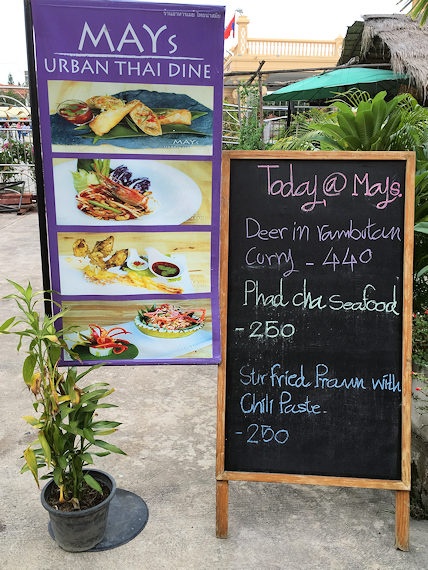 ร้านอาหารเมย์ ไทยน่าสนใจ
MAYs
URBAN THAI DINE
MAYs
Today @ Mays.
Deer in rambutan
Curry - 440
Phad cha seafood
- 250
Stir fried Prawn with
Chili Paste.
- 250